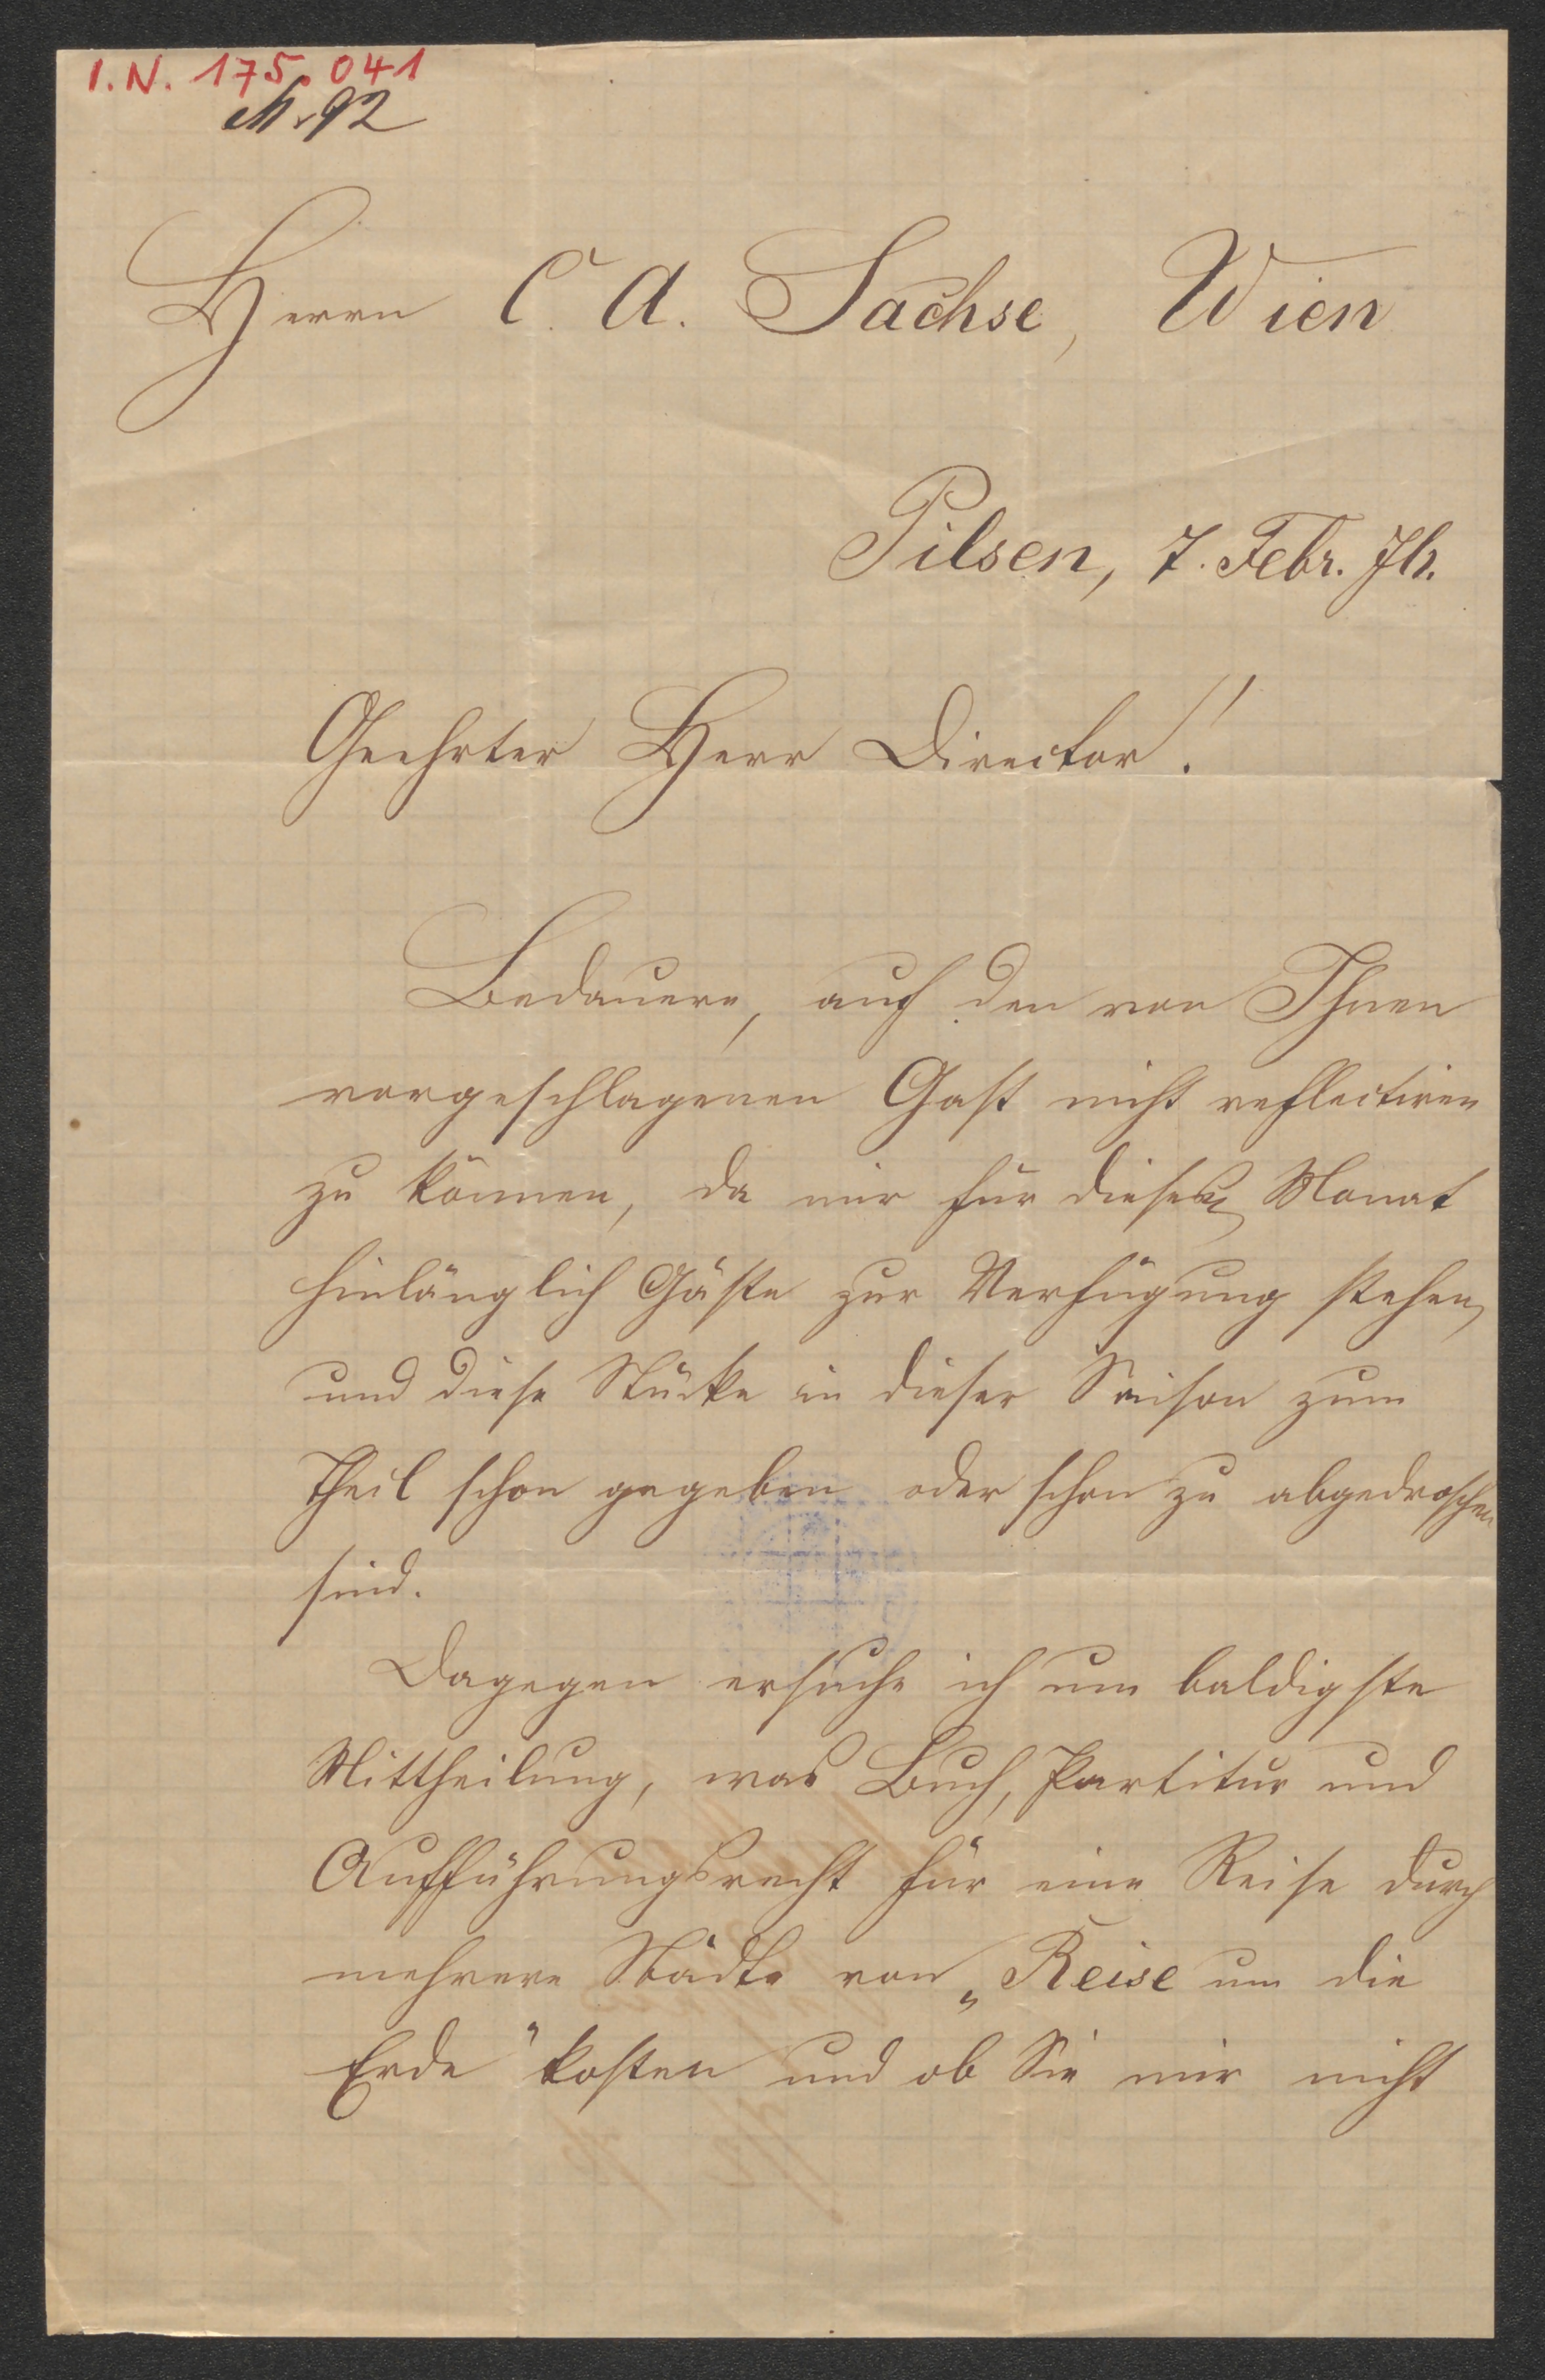 I.N. 175.041
Herrn C. A. Sachse, Wien
Pilsen, 7. Febr. 76.
Geehrter Herr Director!
Bedauere, auf den von Ihnen
vorgeschlagenen Gast nicht reflectiren
zu können, da mir für diesen Monat
hinlänglich Gäste zur Verfügung stehen,
und diese Stücke in dieser Saison zum
Theil schon gegeben oder schon zu abgedroschen
sind.
Dagegen ersuche ich um baldigste
Mittheilung, was Buch, Partitur und
Aufführungsrecht für eine Reise durch
mehrere Städte von „Reise um die
Erde" kosten und ob Sie mir nicht